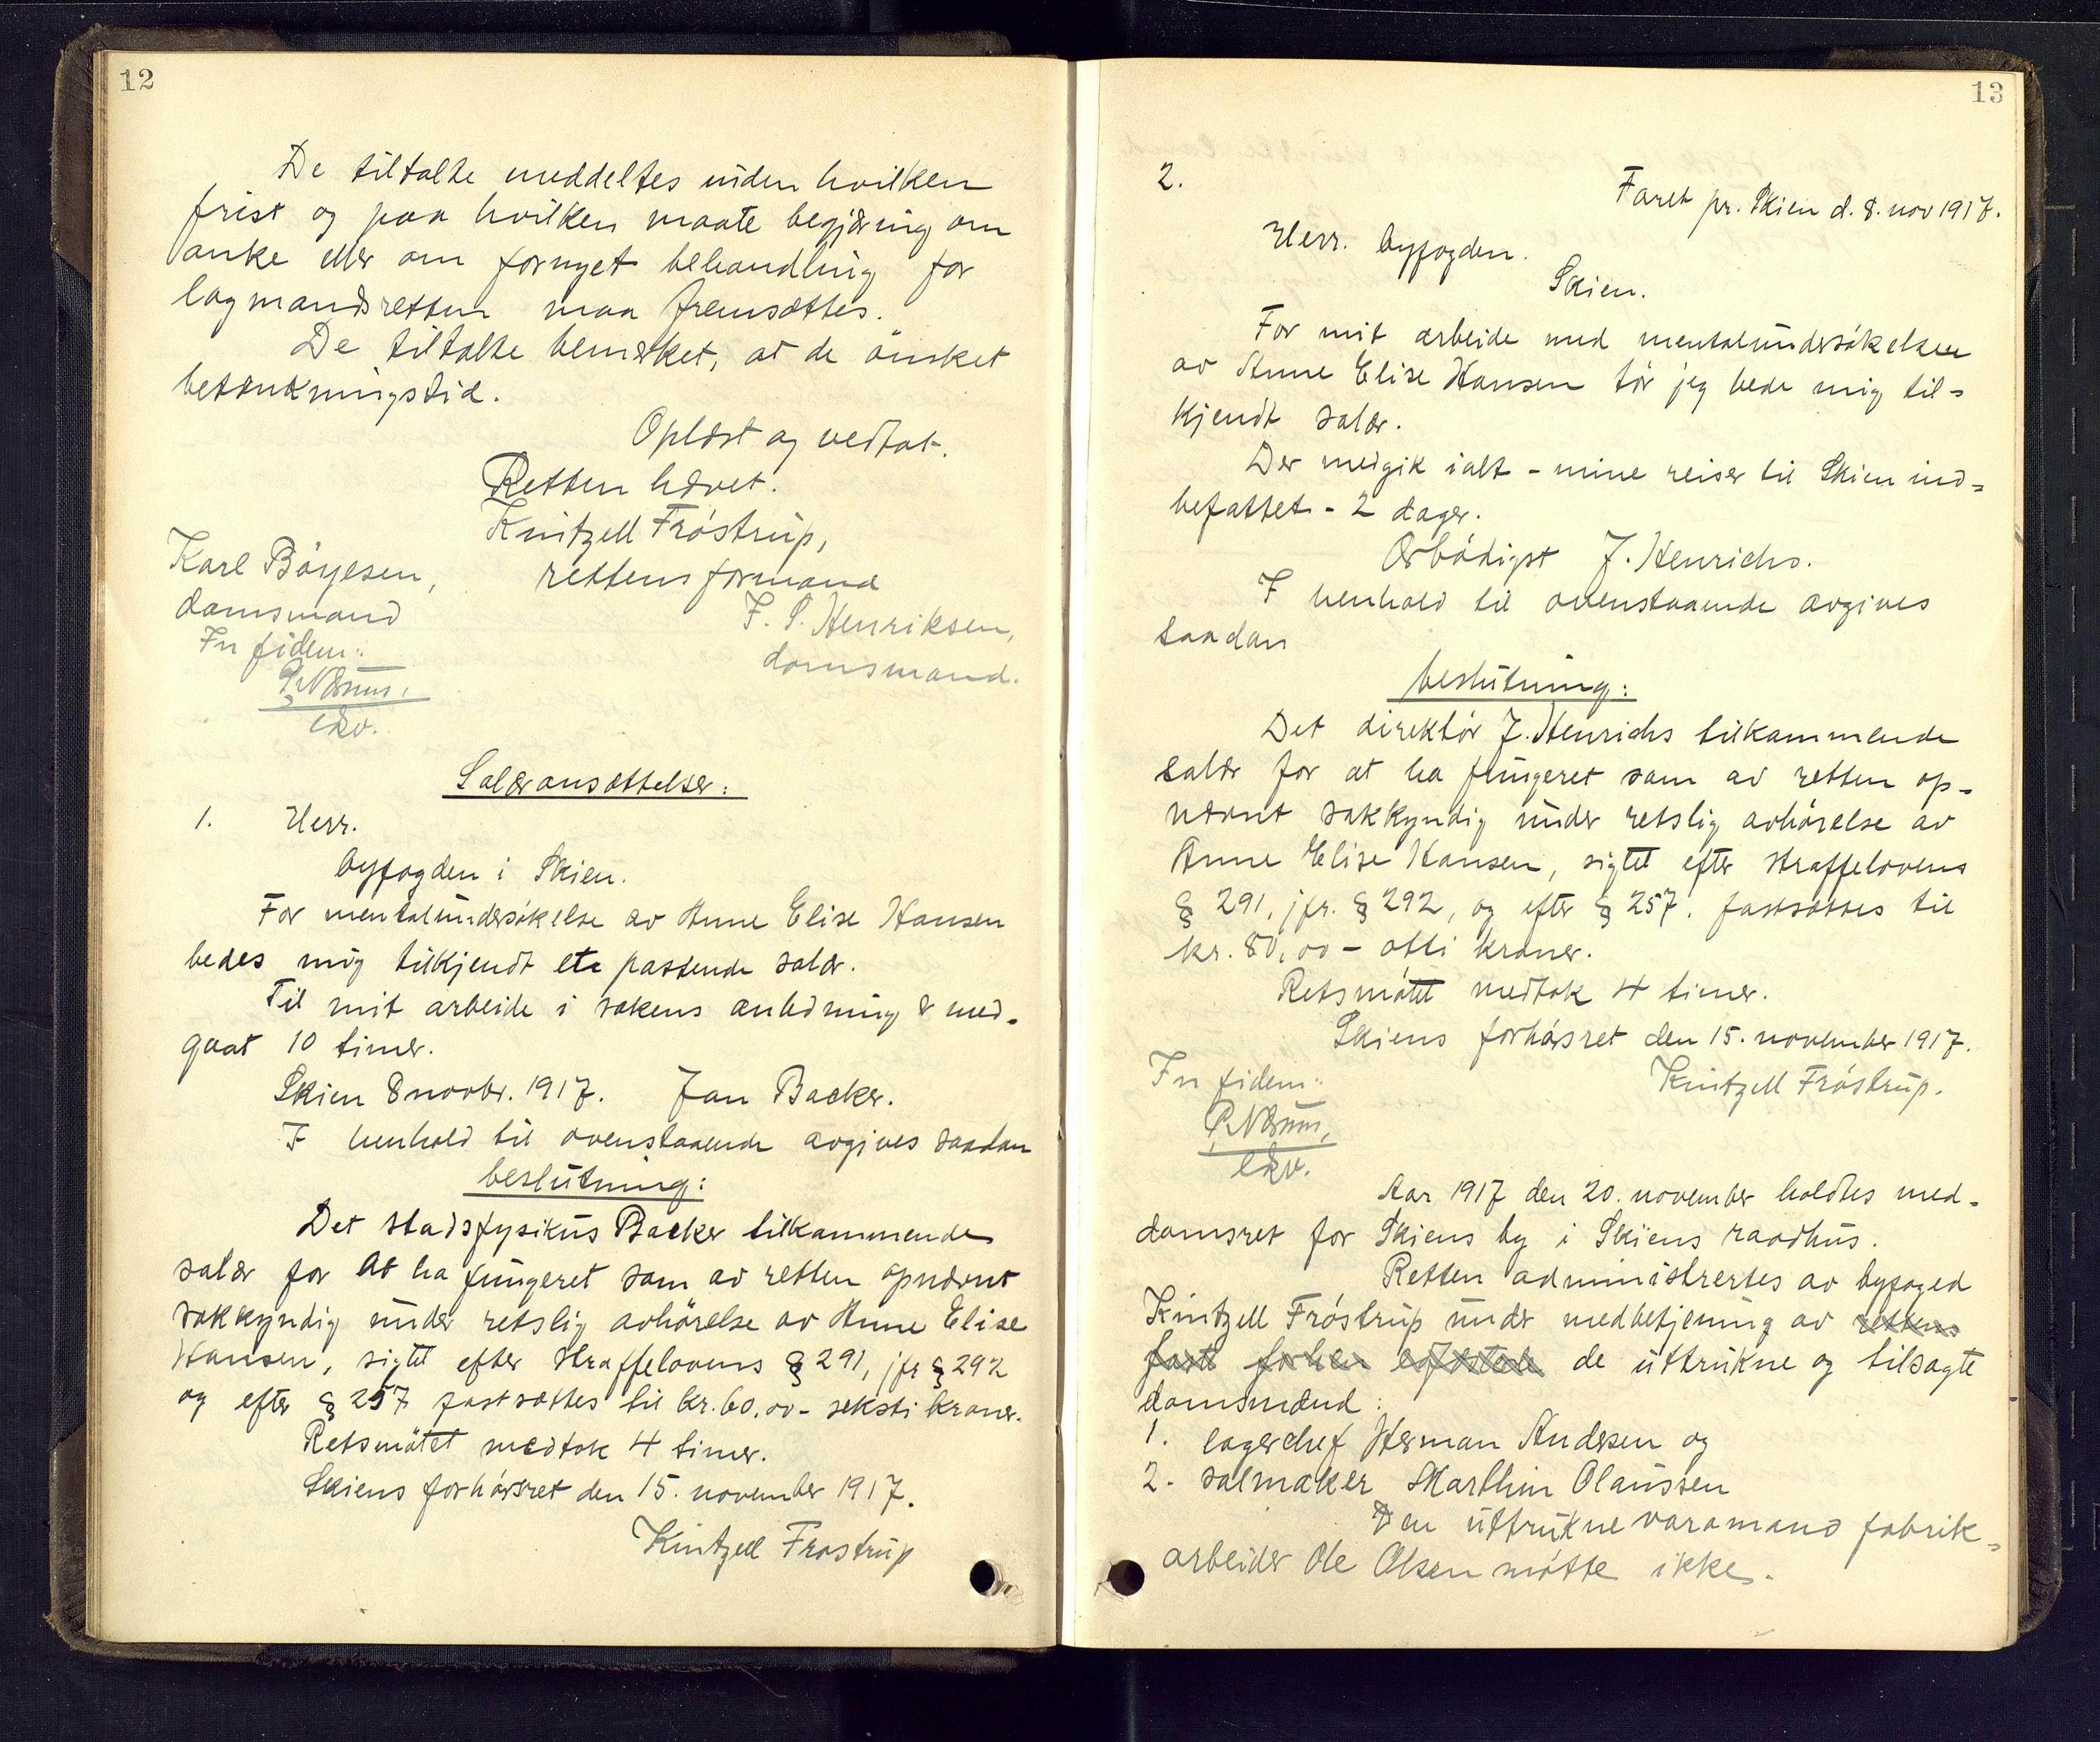 12
De tiltalte meddeltes inden hvilken
frist og paa hvilken maate begjæring om
anke eller om fornyet behandling for
lagmandsretten maa fremsættes.
De tiltalte bemerket, at de ønsket
betænkningstid.
Oplæst og vedtat.
Retten hævet.
Kintzell Frøstrup,
rettens formand
Karl Bøyesen,
domsmand
F. S. Henriksen,
domsmand.
In fidem:
P. Nærum,
edv.
Salæransættelser:
1. Herr.
byfogden i Skien.
For mentalundersøkelse av Anne Elise Hansen
bedes mig tilkjendt et passende salær.
Til mit arbeide i sakens anledning er med-
gaat 10 timer.
Skien 8 novbr. 1917. Jan Backer.
I henhold til ovenstaaende avgives saadan
beslutning:
Det stadsfysikus Backer tilkommende
salær for at ha fungeret som av retten opnævnt
sakkyndig under retslig avhørelse av Anne Elise
Hansen, sigtet efter straffelovens § 291, jfr § 292
og efter § 257 fastsættes til kr. 60,00 - seksti kroner.
Retsmøtet medtok 4 timer.
Skiens forhørsret den 15. november 1917.
Kintzell Frøstrup
13
2.
Faret pr. Skien d. 8. nov 1917.
Herr. byfogden.
Skien.
For mit arbeide med mentalundersøkelsen
av Anne Elise Hansen tør jeg bede mig til-
kjendt salær.
Der medgik ialt - mine reiser til Skien ind-
befattet - 2 dager.
Ærbødigst J. Henrichs.
I henhold til ovenstaaende avgives
saadan
beslutning:
Det direktør J. Henrichs tilkommende
salær for at ha fungeret som av retten op-
nævnt sakkyndig under retslig avhørelse av
Anne Elise Hansen, sigtet efter straffelovens
§ 291, jfr. § 292, og efter § 257. fastsættes til
kr. 80,00 - otti kroner.
Retsmøtet medtok 4 timer.
Skiens forhørsret den 15. november 1917.
In fidem:
Kintzell Frøstrup.
P. Nærum,
edv.
Aar 1917 den 20. november holdtes med-
domsret for Skiens by i Skiens raadhus.
Retten administrertes av byfoged
Kintzell Frøstrup under medbetjening av rettens
de uttrukne og tilsagte
domsmænd:
1. lagerchef Herman Andersen og
2. salmaker Marthin Olaussen
Den uttrukne varamand fabrik-
arbeider Ole Olsen møtte ikke.